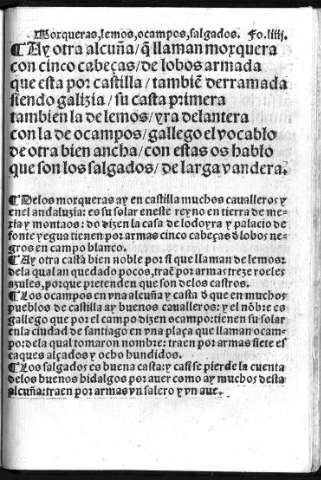 Morqueras, lemos, ocampos, salgados. Fo. liiij.
¶ Ay otra alcuña / q̃ llaman morquera
con cinco cabeças / de lobos armada
que esta por castilla / tambiẽ derramada
siendo galizia / su casta primera
tambien la de lemos / yra delantera
con la de ocampos / gallego el vocablo
de otra bien ancha / con estas os hablo
que son los salgados / de larga vandera.
¶ De los morqueras ay en castilla muchos caualleros y
en el andaluzia: es su solar en este reyno en tierra de me-
xia y montaos: do dizen la casa de lodoyra y palacio de
fonte yegua tienen por armas cinco cabeças d̃ lobos ne-
gros en campo blanco.
¶ Ay otra casta bien noble por si que llaman de lemos:
de la qual an quedado pocos, traẽ por armas treze roeles
azules, porque pretenden que son delos castros.
¶ Los ocampos en vna alcuña y casta d̃ que en muchos
pueblos de castilla ay buenos caualleros: y el nõbre es
gallego que por el campo dizen ocampo: tienen su solar
en la ciudad de santiago en vna plaça que llaman ocam-
po: de la qual tomaron nombre: traen por armas siete es
caques alçados y ocho bundidos.
¶ Los salgados es buena casta: y casi se pierde la cuenta
delos buenos hidalgos por auer como ay muchos desta
alcuña: traen por armas vn salero y vn aue.